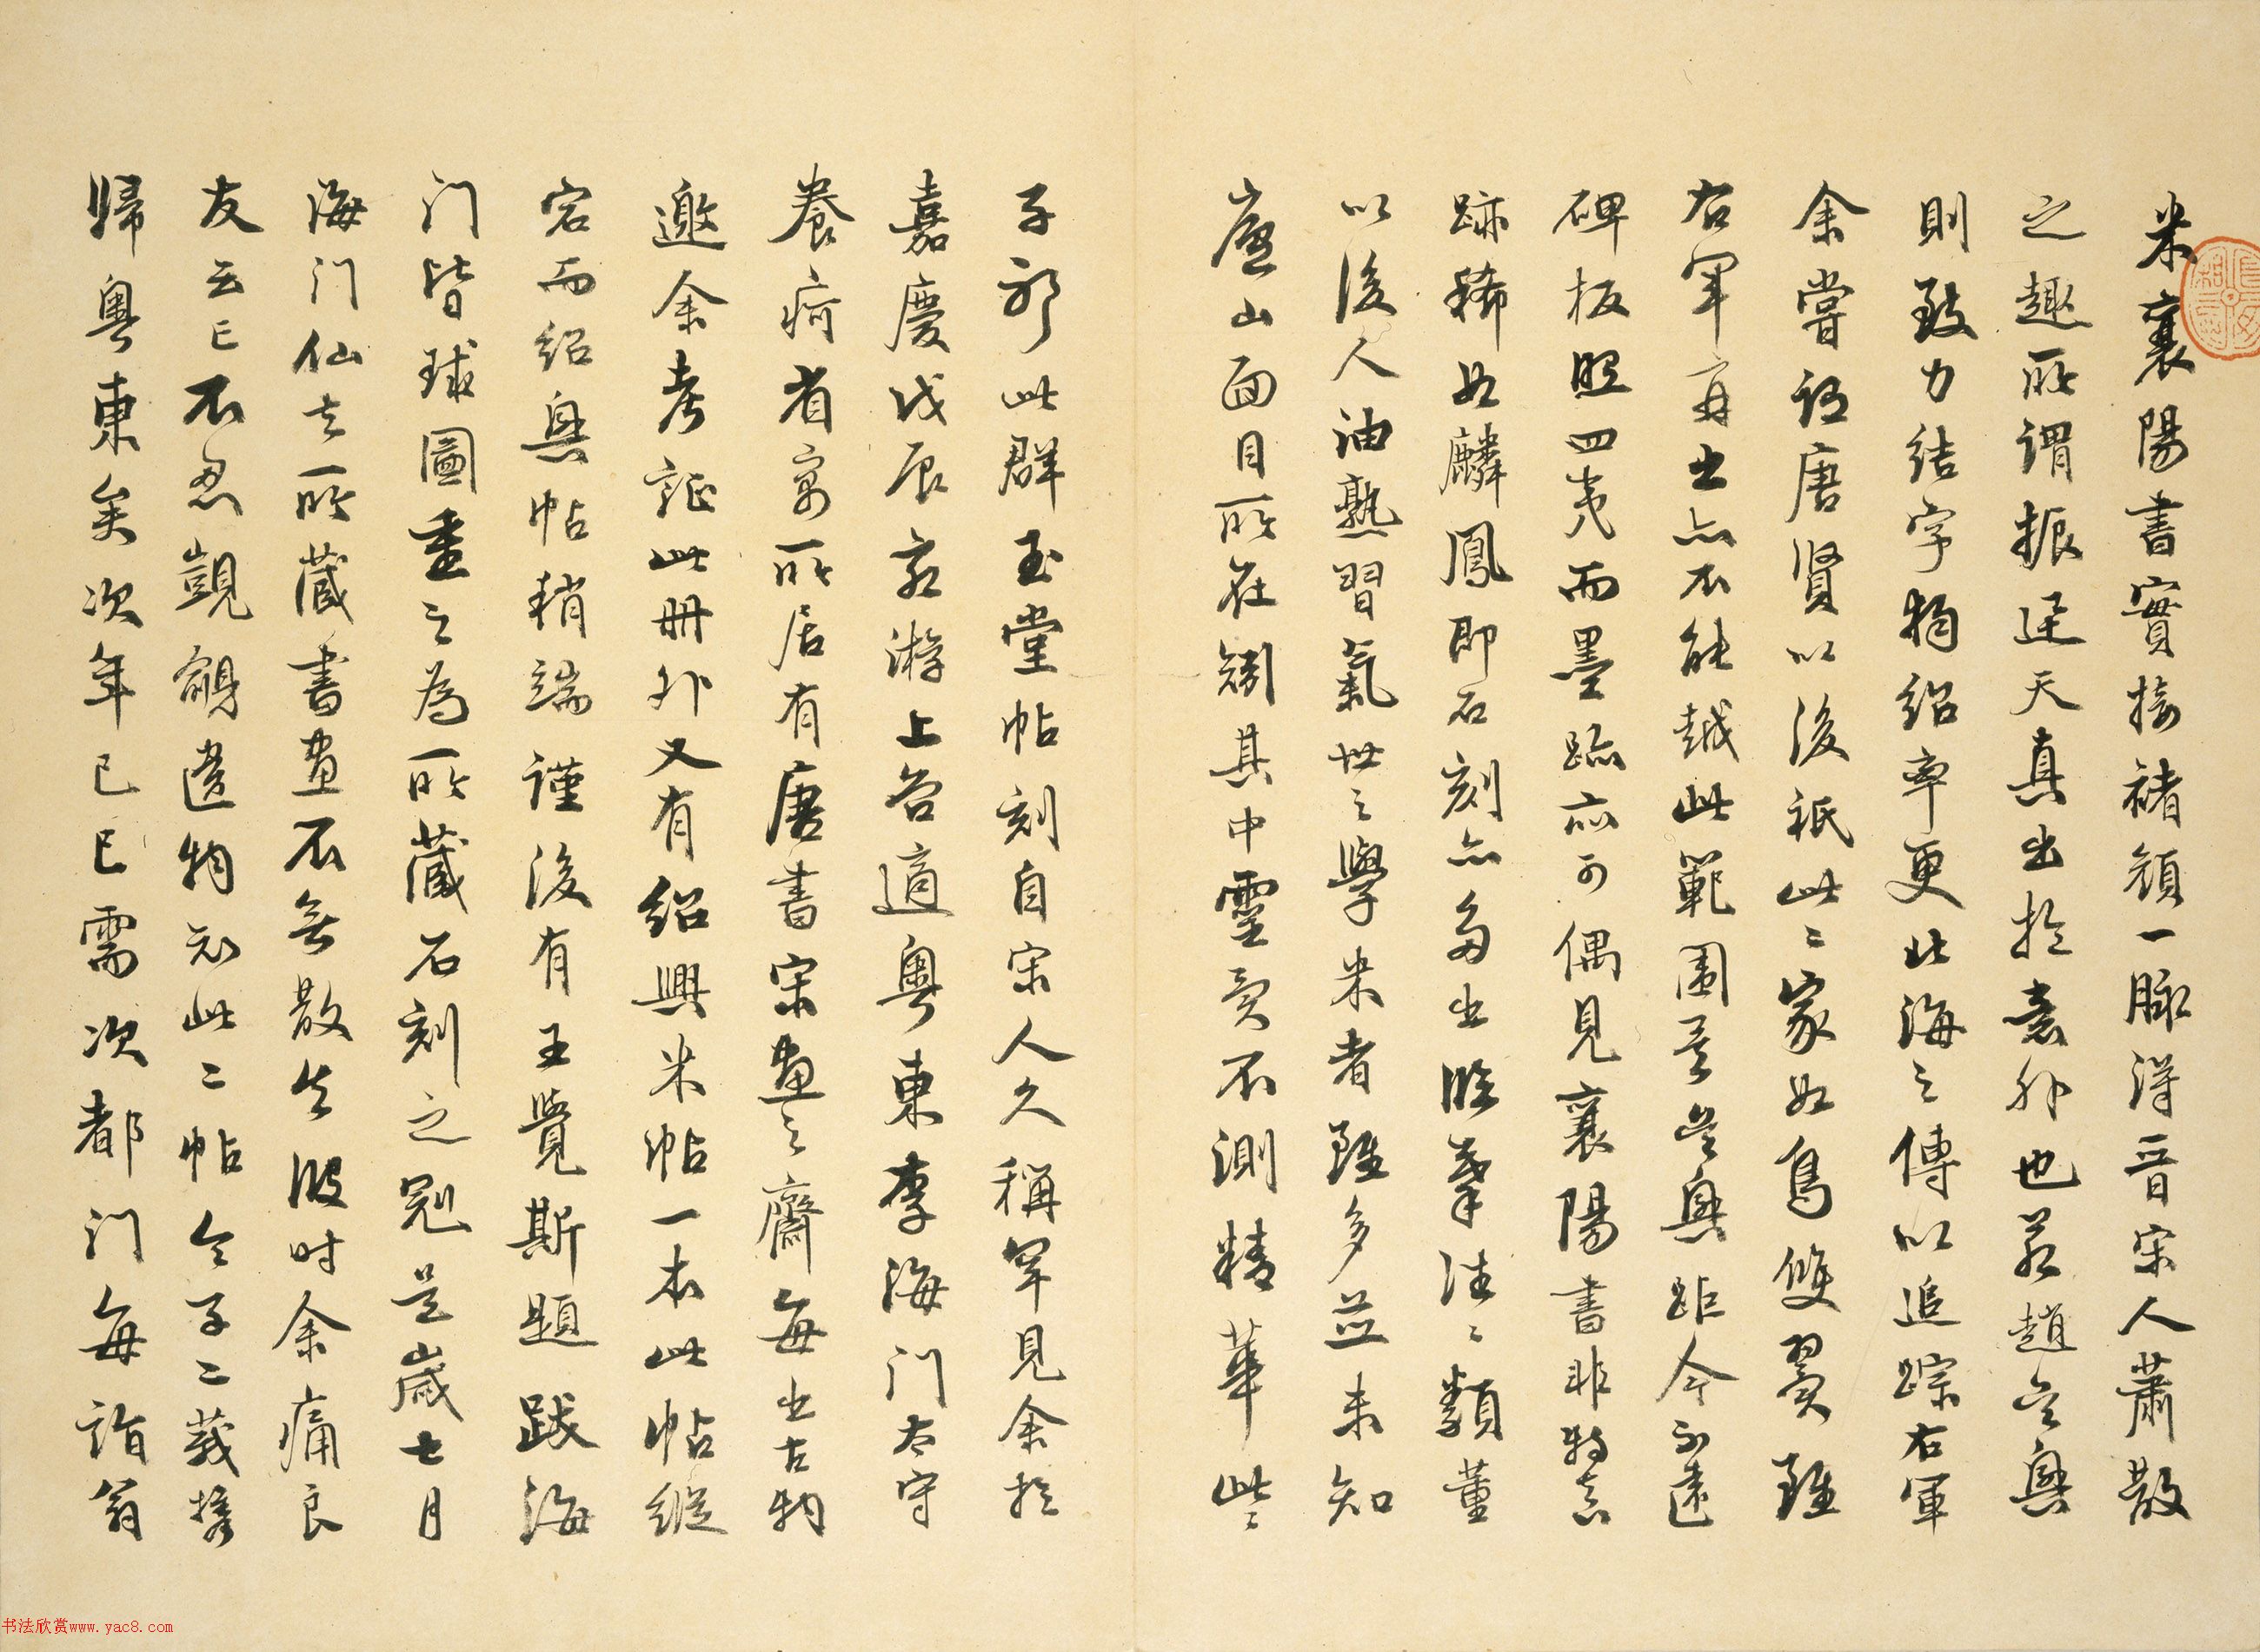 米襄陽書實接褚顔一脉得晉宋人蕭散
之趣所謂振迅天真出於意外也若趙吳興
則致力結字稍紹率更北海之傳以追踪右軍
余嘗謂唐賢以後祇此二家如鳥雙翼雖
右軍再出亦不能越此範圍吳興距今不遠
碑板照四夷而墨跡亦可偶見襄陽書非特真
跡稀如麟鳳即石刻亦多出臨摹往往類董
以後人油熟習氣世之學米者雖多並未知
廬山面目所在矧其中靈變不測精華此
子耶此群玉堂帖刻自宋人久稱罕見余於
嘉慶戊辰薄游上谷適粤東李海门太守
養疴省寓所居有唐書宋畫之齋每出古物
邀余考証此冊外又有紹興米帖一本此帖縱
宕而紹興帖稍端謹後有王覺斯題跋海
门皆球圖重之為所藏石刻之冠是歲七月
海门仙去所藏書畫不無散失彼时余痛良
友云亡不忍覬覦遺物知此二帖令子二莪携
歸粤東矣次年己巳需次都门每詣翁
书法欣赏www.yac8.com